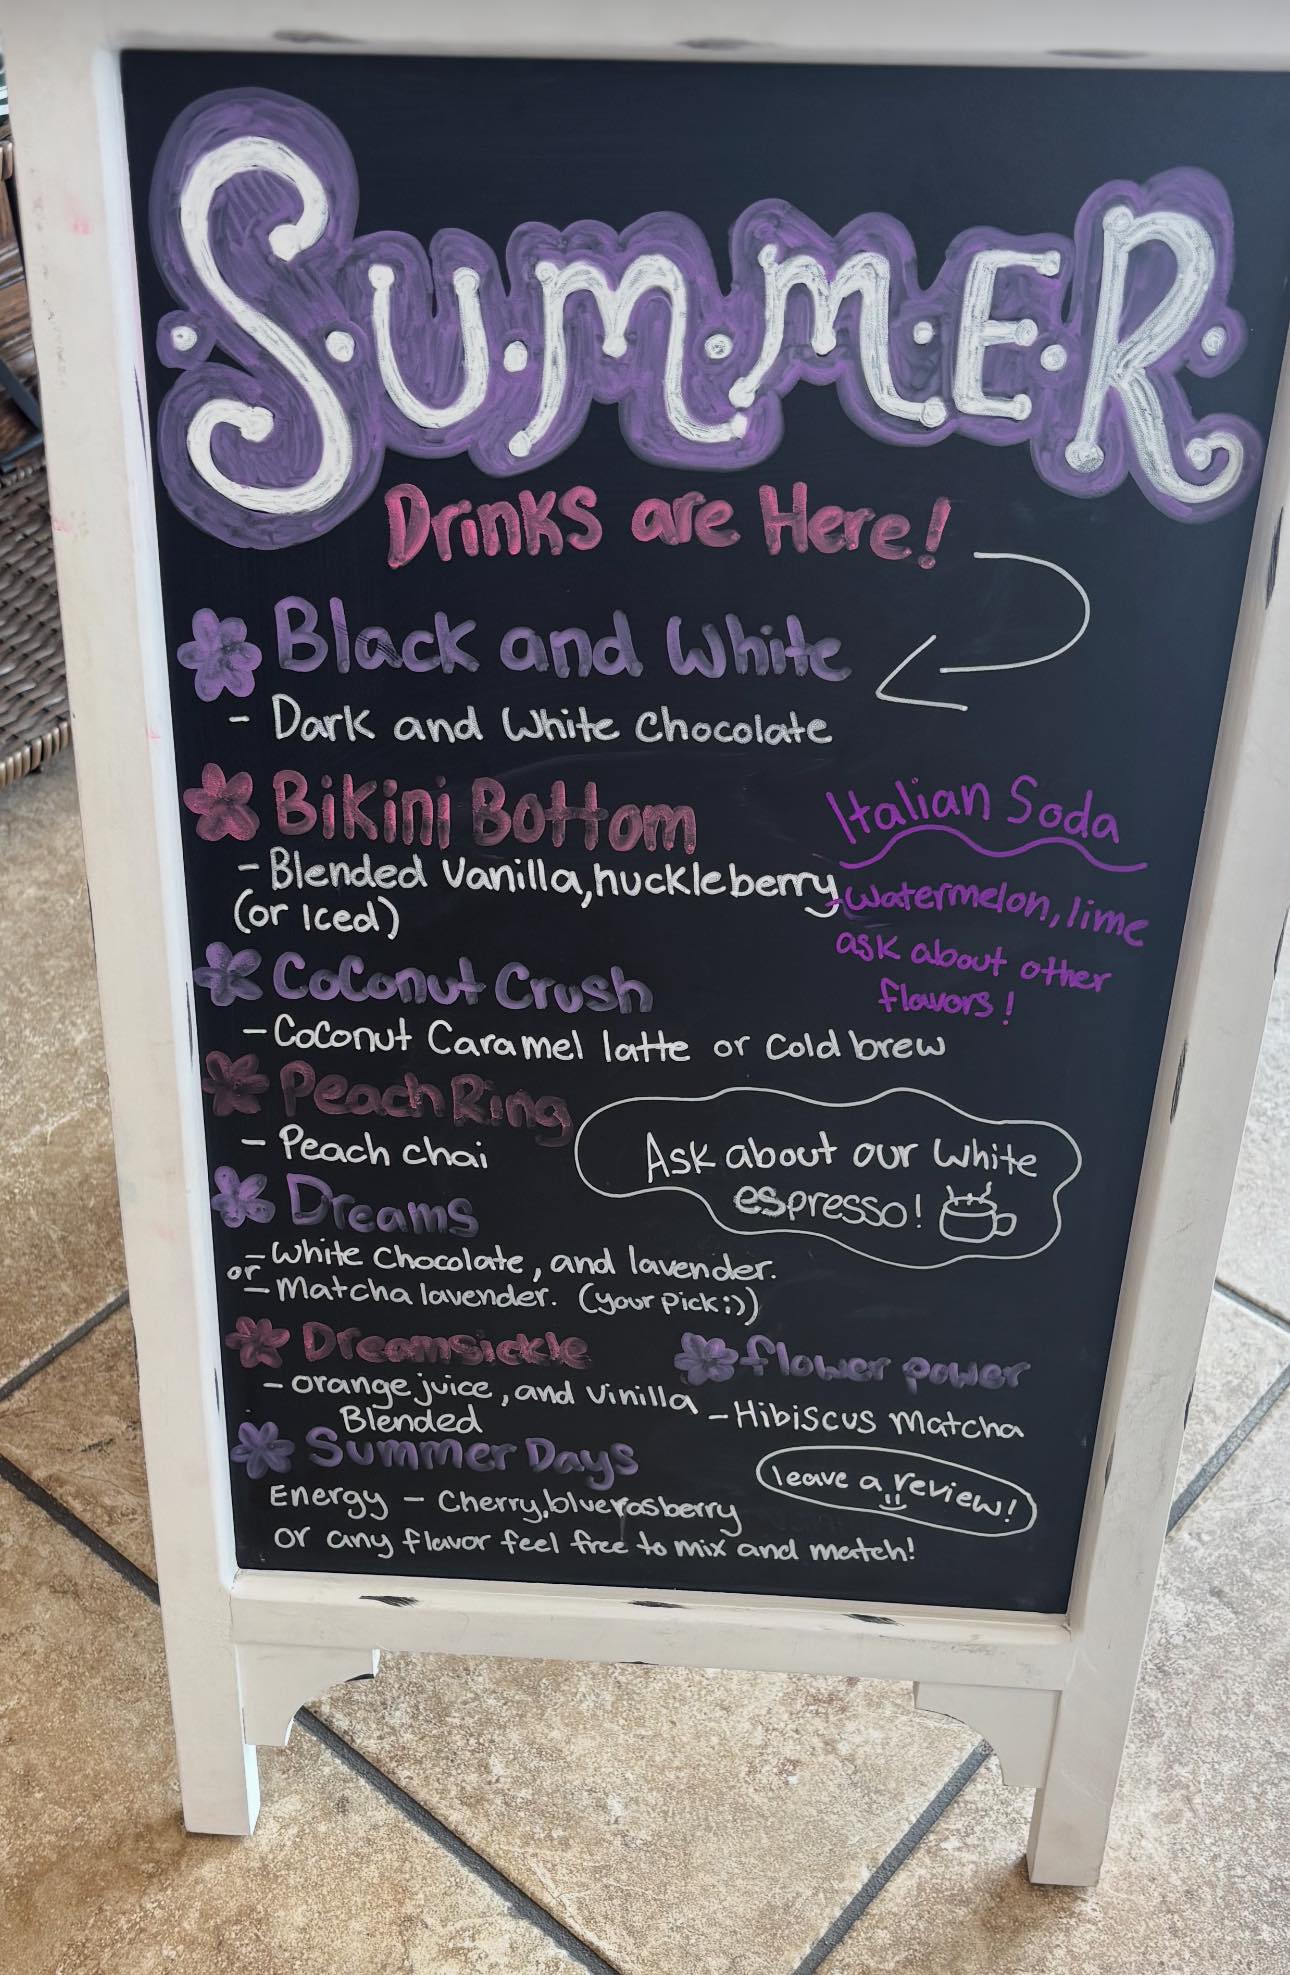 SUMMER
Drinks are Here!
Black and White
- Dark and White Chocolate
Bikini Bottom
- Blended Vanilla, huckleberry
(or Iced)
Italian Soda
- Watermelon, lime
ask about other
flavors!
Coconut Crush
- Coconut Caramel latte or cold brew
Peach Ring
- Peach chai
Ask about our White
espresso!
Dreams
- White Chocolate, and lavender.
or
- Matcha lavender. (your pick :))
Dreamsickle
- orange juice, and Vinilla
Blended
flower power
- Hibiscus Matcha
Summer Days
Energy - Cherry, blue rasberry
or any flavor feel free to mix and match!
leave a review!